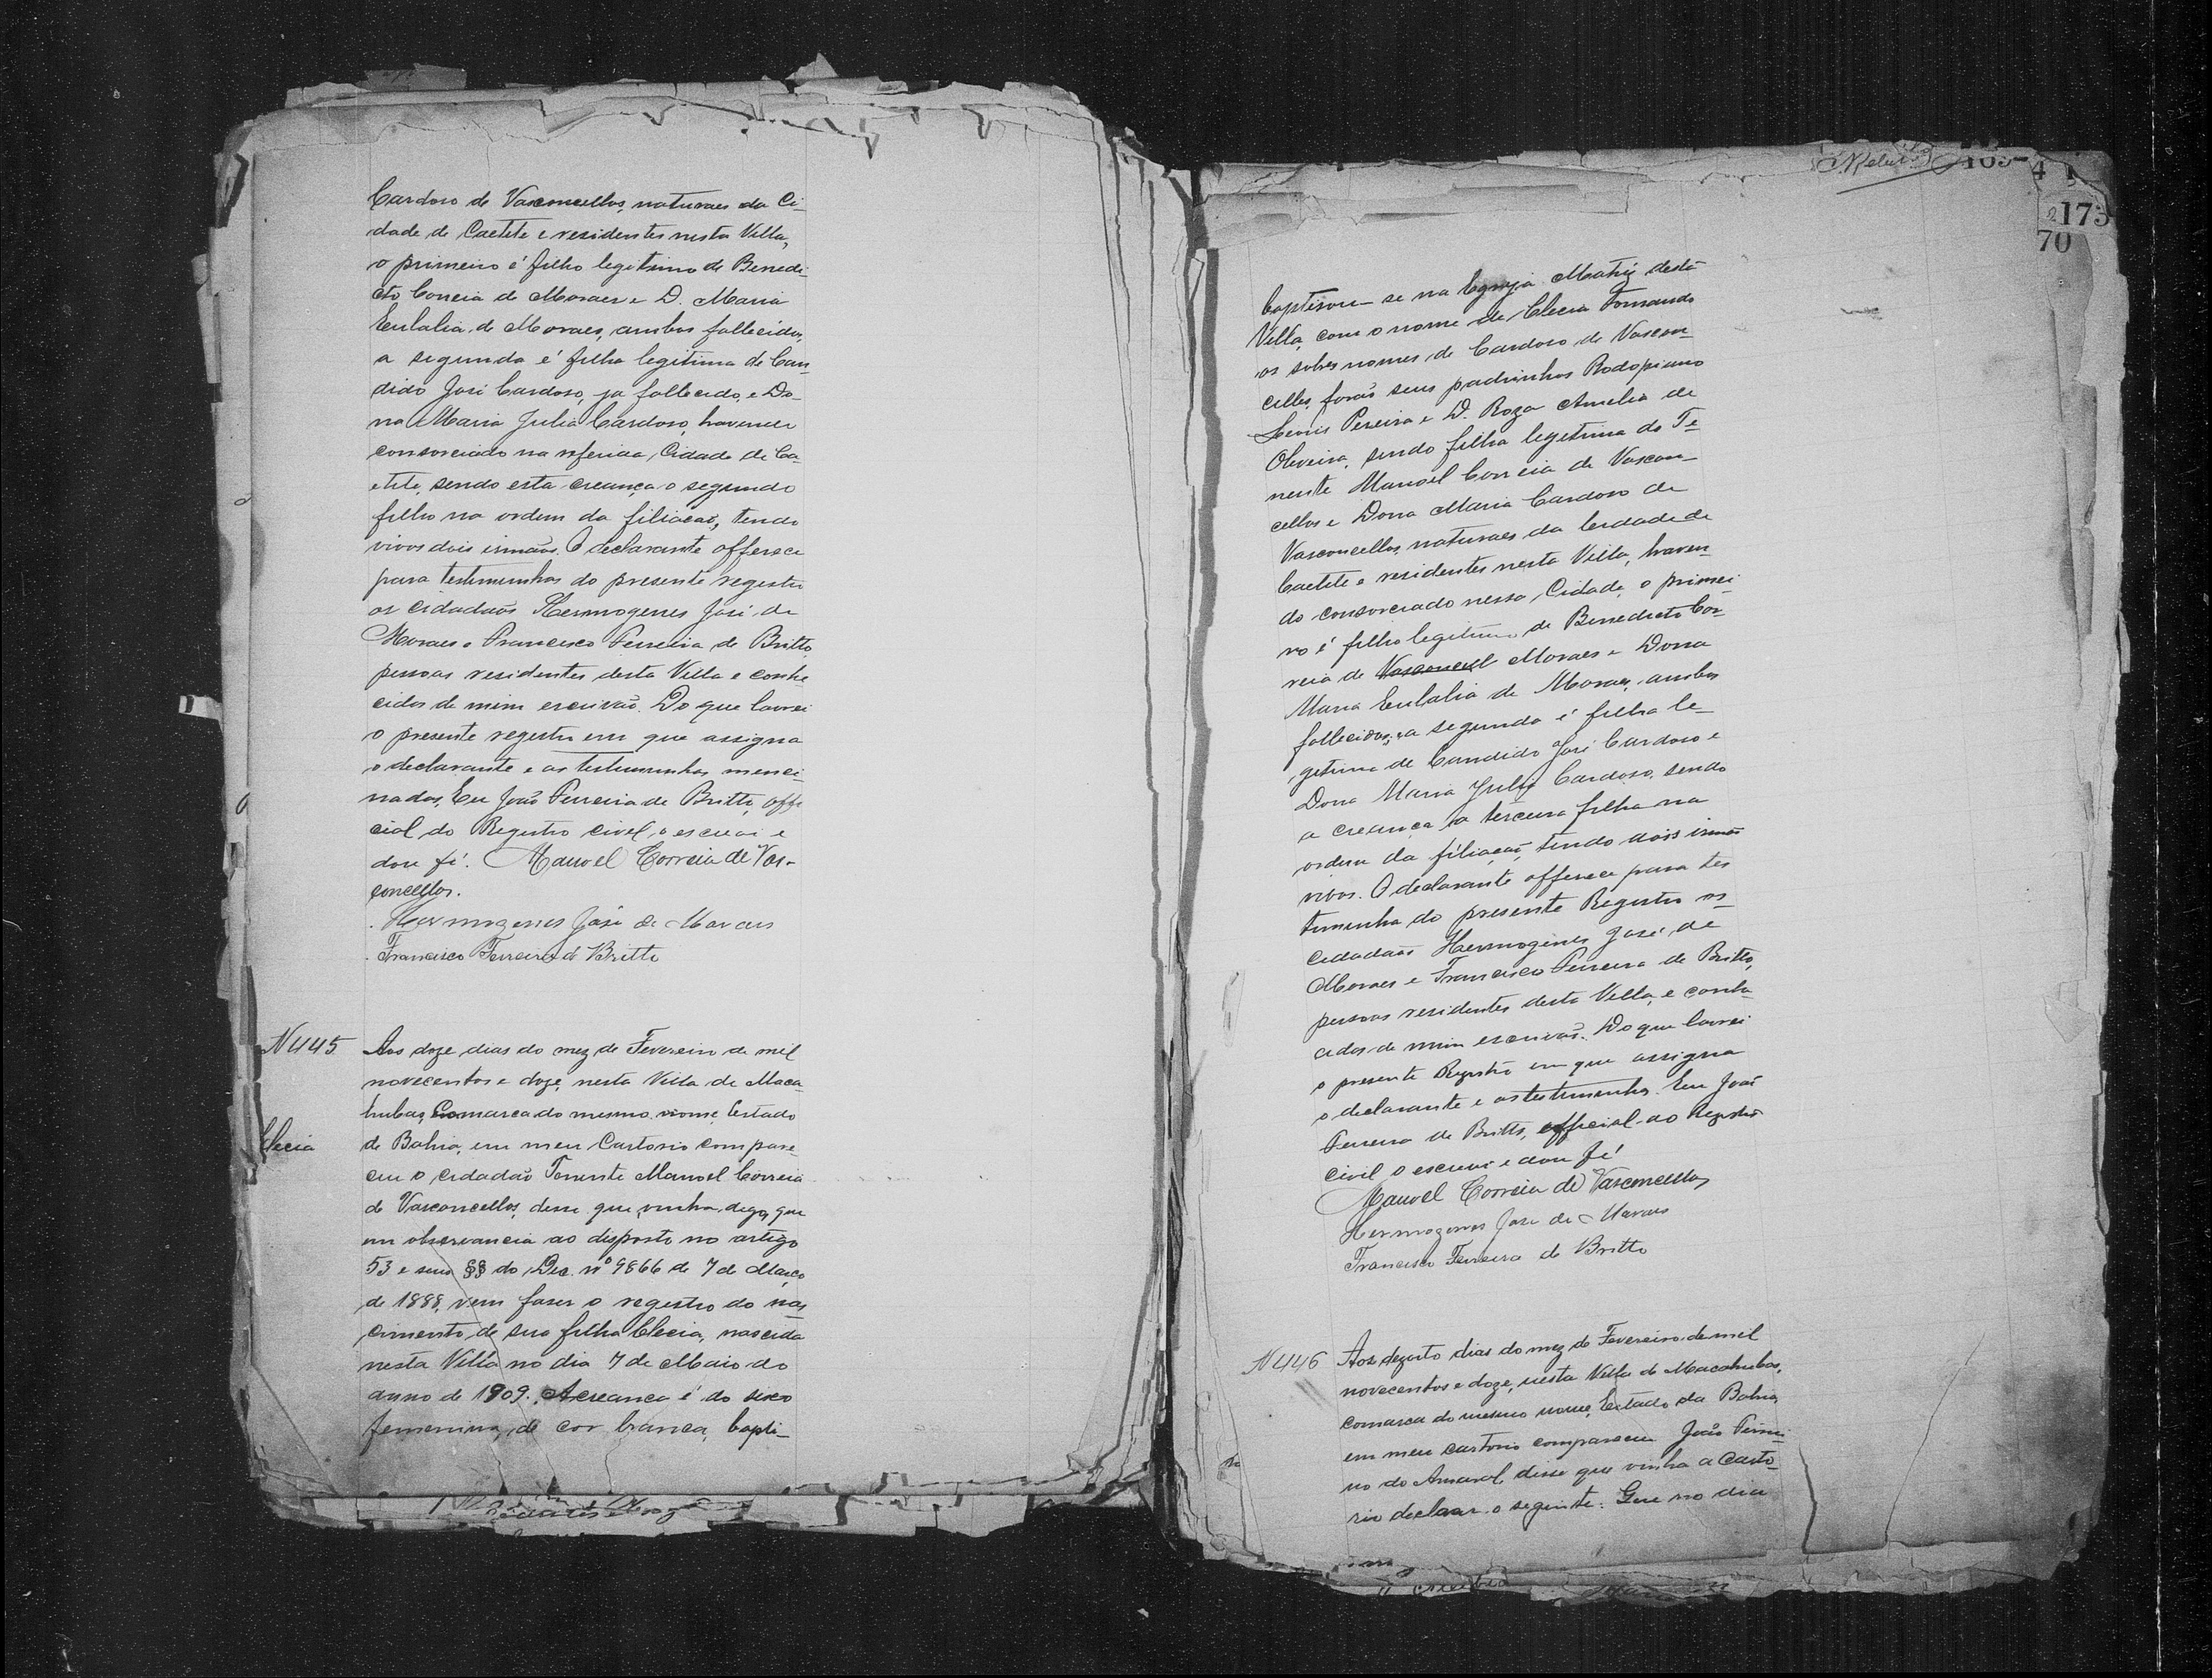 Cardoso de Vasconcellos, naturaes da Ci-
dade de Caetite e residentes nesta Villa,
o primeiro é filho legitimo de Benedi-
cto Correia de Moraes e D. Maria
Eulalia de Moraes, ambos fallecidos,
a segunda é filha legitima de Can-
dido José Cardoso, ja fallecido, e Do-
na Maria Julia Cardoso, havendo
consorciado na referida Cidade de Ca-
etite, sendo esta creança o segundo
filho na ordem da filiacaõ, tendo
vivos dois irmãos. O declarante offerece
para testimunhas do presente registro
os cidadaõs Hermogenes José de
Moraes e Francisco Ferreira de Britto,
pessoas residentes desta Villa e conhe
cidos de mim escrivaõ. Do que lavrei
o presente registro em que assigna
o declarante e as testimunhas menci-
nadas. Eu João Ferreira de Britto, offi
cial do Registro civel, o escrevi e
dou fé. Manoel Correia de Vas-
concellos.
Hermogenes José de Moraes
Francisco Ferreira de Britto
N 445
Aos doze dias do mez de Fevereiro de mil
novecentos e doze, nesta Villa de Maca
hubas, Comarca do mesmo nome, Estado
Clecia
da Bahia, em meu Cartorio compare-
ceu o cidadão Tenente Manoel Correia
de Vasconcellos, disse que vinha digo, que
em observancia ao disposto no artigo
53 e seus §§ do Dec. nº 9866 de 7 de Março
de 1888, vem faser o registro do nas
cimento de sua filha Clecia, nascida
nesta Villa no dia 7 de Maio do
anno de 1909. A creanca é do sexo
femenino, de cor branca, bapti-
173
70
baptisou-se na Egreja Matriz desta
Villa, com o nome de Clecia tomando
os sobres nomes de Cardoso de Vascon-
cellos, foraõ seus padrinhos Rodopiano
Pereira e D. Roza Amelia de
Oliveira, sendo filha legitima do Te-
nente Manoel Correia de Vascon-
cellos e Dona Maria Cardoso de
Vasconcellos, naturaes da Cidade de
Caetite e residentes nesta Villa, haven-
do consorciado nessa Cidade, o primei-
ro é filho legitimo de Benedicto Cor-
reia de Vasconcel Moraes e Dona
Maria Eulalia de Moraes, ambos
fallecidos; a segunda é filha le-
getima de Candido José Cardoso e
Dona Maria Julia Cardoso, sendo
a creança a terceira filha na
ordem da filiaçaõ, tendo dois irmãos
vivos. O declarante offerece para tes
timunha do presente Registro os
cidadaõs Hermogenes José de
Moraes e Francisco Ferreira de Britto,
pessoas residentes desta Villa, e conhe
cidos de mim escrivaõ. Do que lavrei
o presente Registro em que assigna
o declarante e as testimunhas. Eu Joaõ
Ferreira de Britto, official do Registro
civil o escrevi e dou fé
Manoel Correia de Vasconcellos
Hermogenes José de Moraes
Francisco Ferreira de Britto
N 446
Aos dezoito dias do mez de Fevereiro de mil
novecentos e doze, nesta Villa de Macahubas,
comarca do mesmo nome, Estado da Bahia,
em meu cartorio compareceu João Firmi-
no do Amaral, disse que vinha a Carto-
rio declarar o seguinte: Que no dia